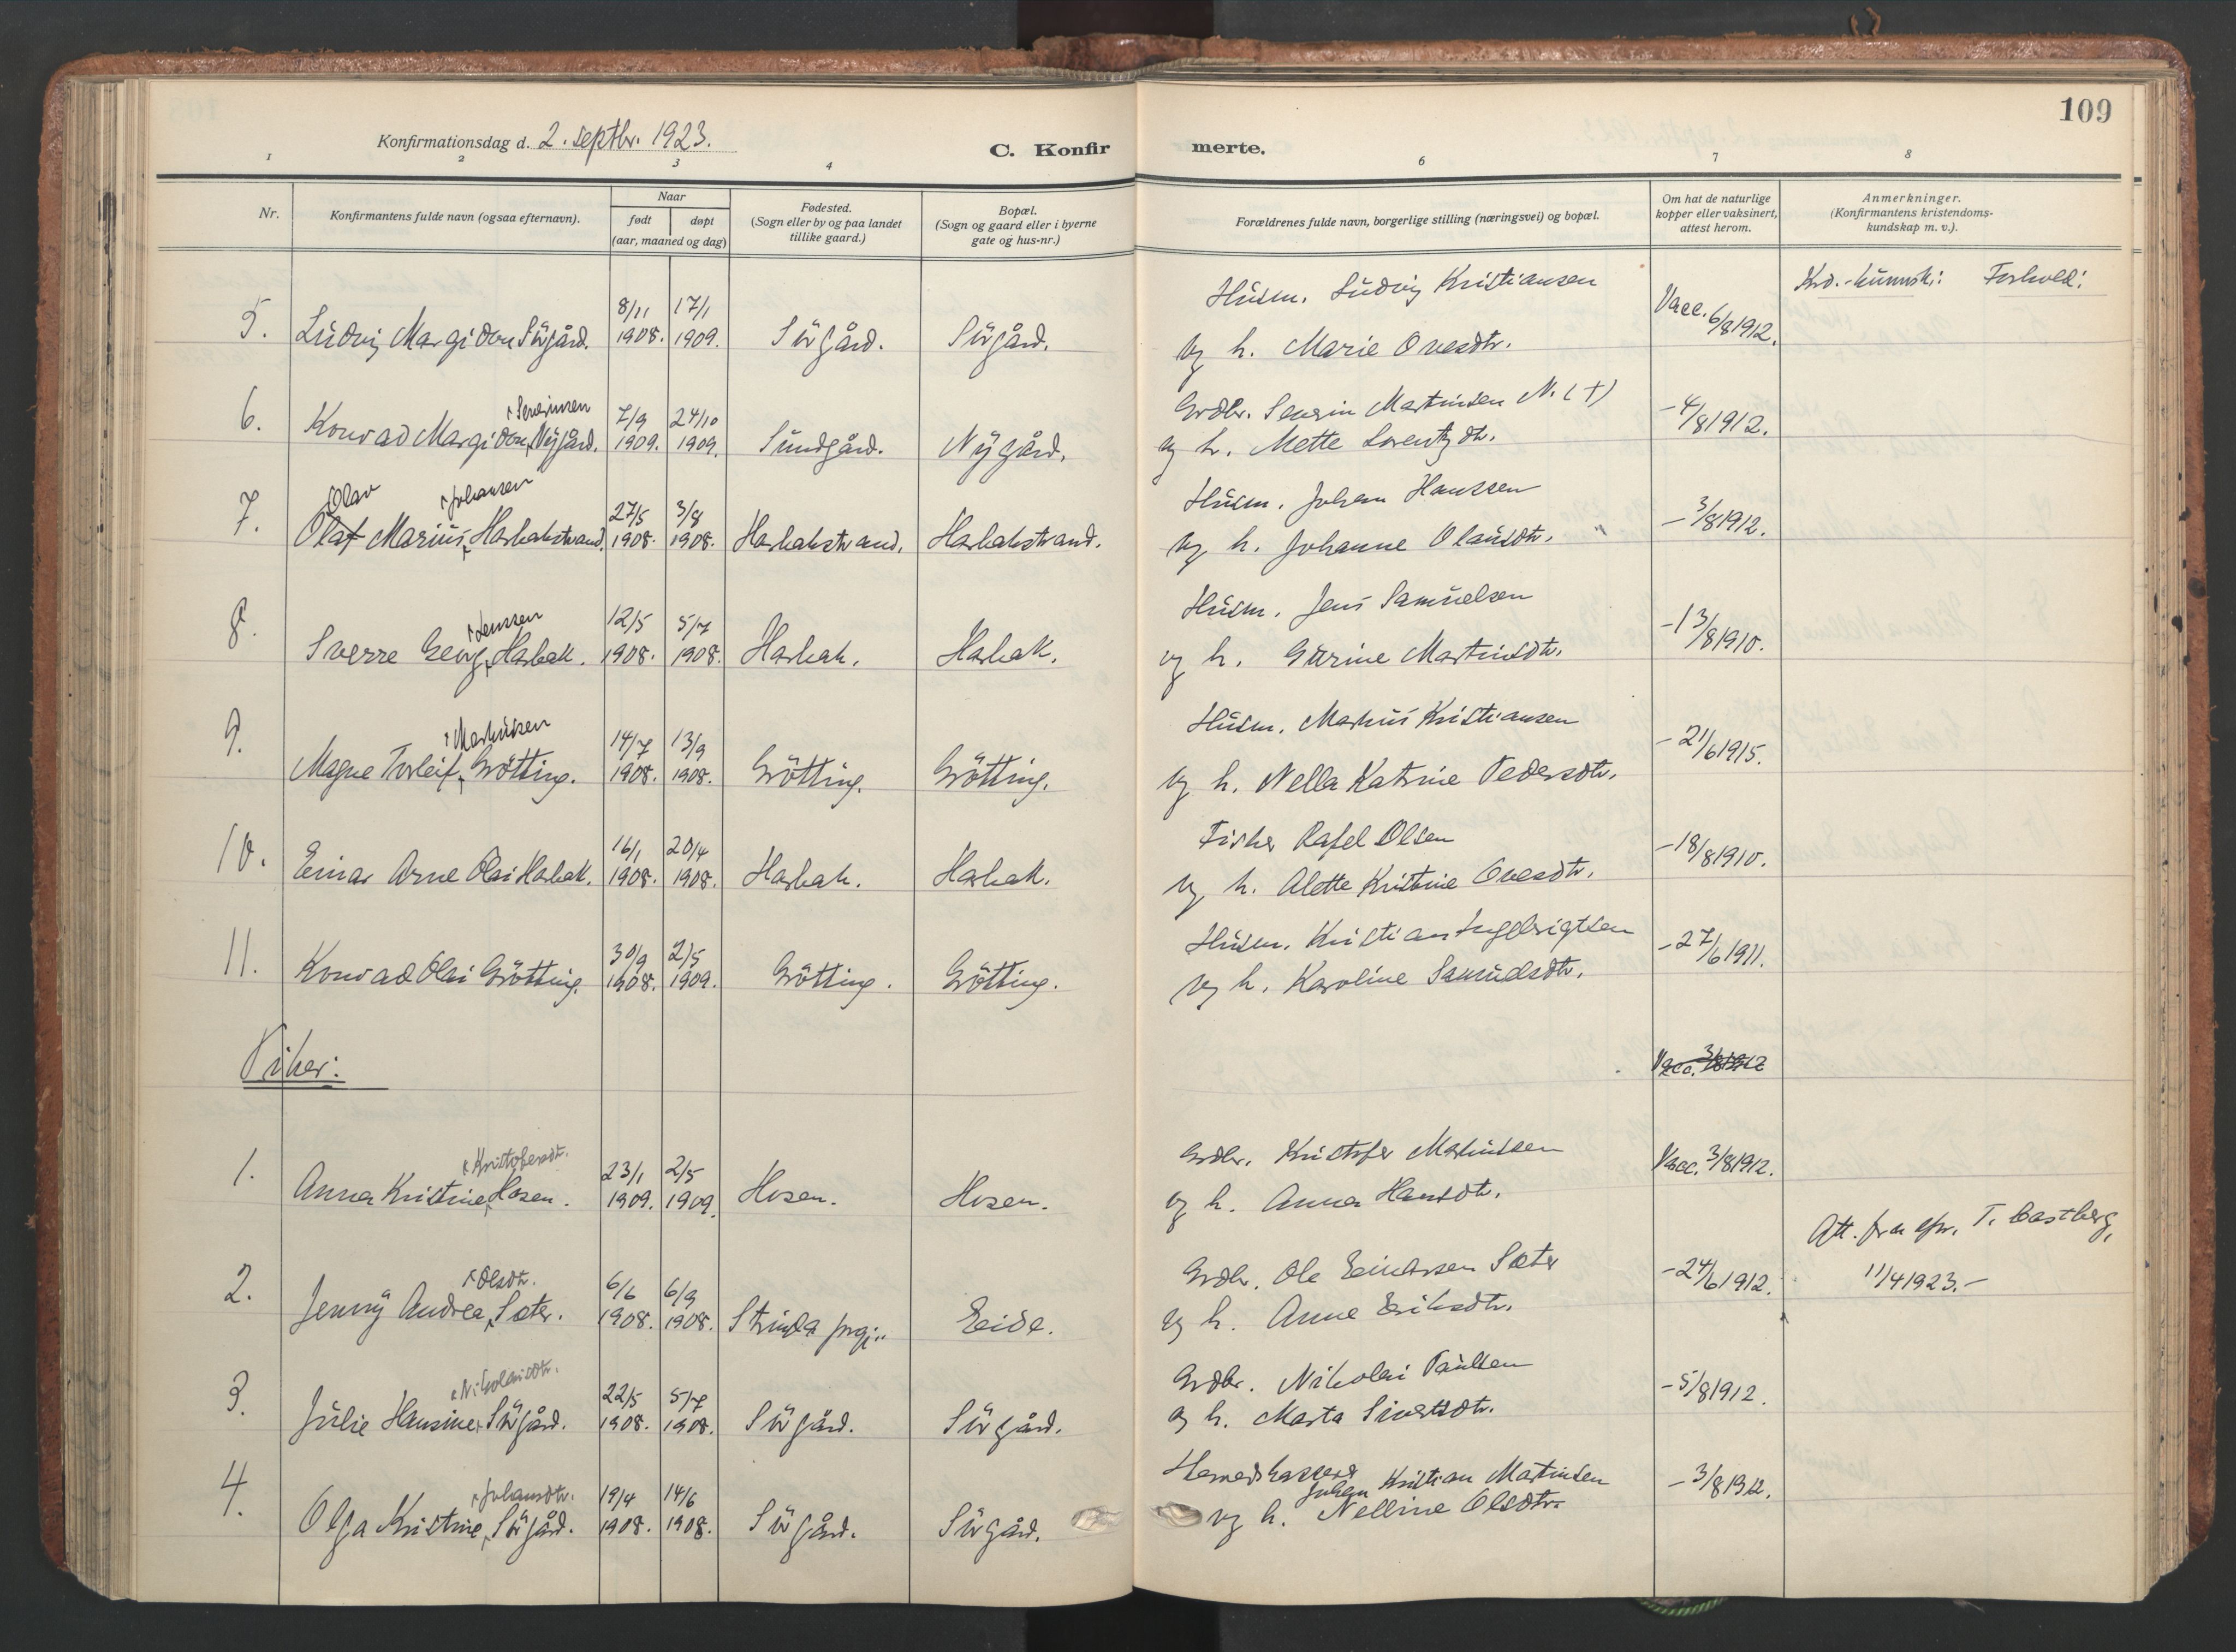 109
Konfirmationsdag d. 2. septbr. 1923.
C. Konfir
merte.
1 2 3 4 6 7 8
Nr.
Konfirmantens fulde navn (ogsaa efternavn).
Naar
født
døpt
(aar, maaned og dag)
Fødested.
(Sogn eller by og paa landet
tillike gaard.)
Bopæl.
(Sogn og gaard eller i byerne
gate og hus-nr.)
Forældrenes fulde navn, borgerlige stilling (næringsvei) og bopæl.
Om hat de naturlige
kopper eller vaksinert,
attest herom.
Anmerkninger.
(Konfirmantens kristendoms-
kundskap m. v.).
Husm. Ludvig Kristiansen
Krd.-kunnsk: Forhold:
8/11 17/1
Vacc. 6/8 1912.
5. Ludvig Margidon Sürgård. 1908. 1909. Sürgård. Sürgård.
og h. Marie Ovesdtr.
Severinsen
Grdbr. Severin Martinsen N. (+)
7/9 24/10
- 4/8 1912.
6. Konrad Margidon Nygård. 1909. 1909. Sundgård. Nygård.
og h. Mette Lorentzdtr.
Olav Johansen
Husm. Johan Hanssen
27/5 3/8
- 3/8 1912.
7. Olaf Marius Harbakstrand. 1908. 1908. Harbakstrand. Harbakstrand.
og h. Johanne Olausdtr.
Jenssen
Husm. Jens Samuelsen
12/5 5/7
- 13/8 1910.
8. Sverre Georg Harbak. 1908. 1908. Harbak. Harbak.
og h. Gurine Martinsdtr.
Markussen
Husm. Markus Kristiansen
14/7 13/9
- 21/6 1915.
9. Magne Torleif Grötting. 1908. 1908. Grötting. Grötting.
og h. Nella Katrine Pedersdtr.
Fisker Rafel Olsen
16/1 20/4
- 18/8 1910.
10. Einar Arne Olai Harbak. 1908. 1908. Harbak. Harbak.
og h. Alette Kristine Ovesdtr.
Husm. Kristian Ingebrigtsen
30/9 2/5
- 27/6 1911.
11. Konrad Olai Grötting. 1908. 1909. Grötting. Grötting.
og h. Karoline Samuelsdtr.
Piker:
Vacc. 3/8 1912
Kristofersdtr.
Grdbr. Kristofer Markussen
23/1 2/5
Vacc. 3/8 1912.
1. Anna Kristine Hosen. 1909. 1909. Hosen. Hosen.
og h. Anna Hansdtr.
Att. fra spr. T. Castberg,
Olsdtr.
Grdbr. Ole Eindrsen Sæter
6/6 6/9
- 24/6 1912.
11/4 1923.-
2. Jenny Andrea Sæter. 1908. 1908. Strinda prgj. Eide.
og h. Anne Eriksdtr.
Nikolaisdtr.
Grdbr. Nikolai Paulsen
22/5 5/7
- 5/8 1912.
3. Julie Hansine Sürgård. 1908. 1908. Sürgård. Sürgård.
og h. Marta Sivertsdtr.
Johansdtr.
Herredskasserer
Johan Kristian Martinsen
19/4 14/6
- 3/8 1912.
4. Olga Kristine Sürgård. 1908. 1908. Sürgård. Sürgård.
og h. Nelline Olsdtr.